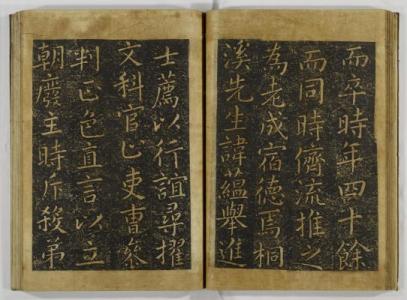 而卒時年四十餘
而同時儕流推之
為老成宿德焉桐
溪先生諱蘊舉進
士薦以行誼尋擢
文科官止吏曹參
判正色直言以立
朝廢主時斥殺弟